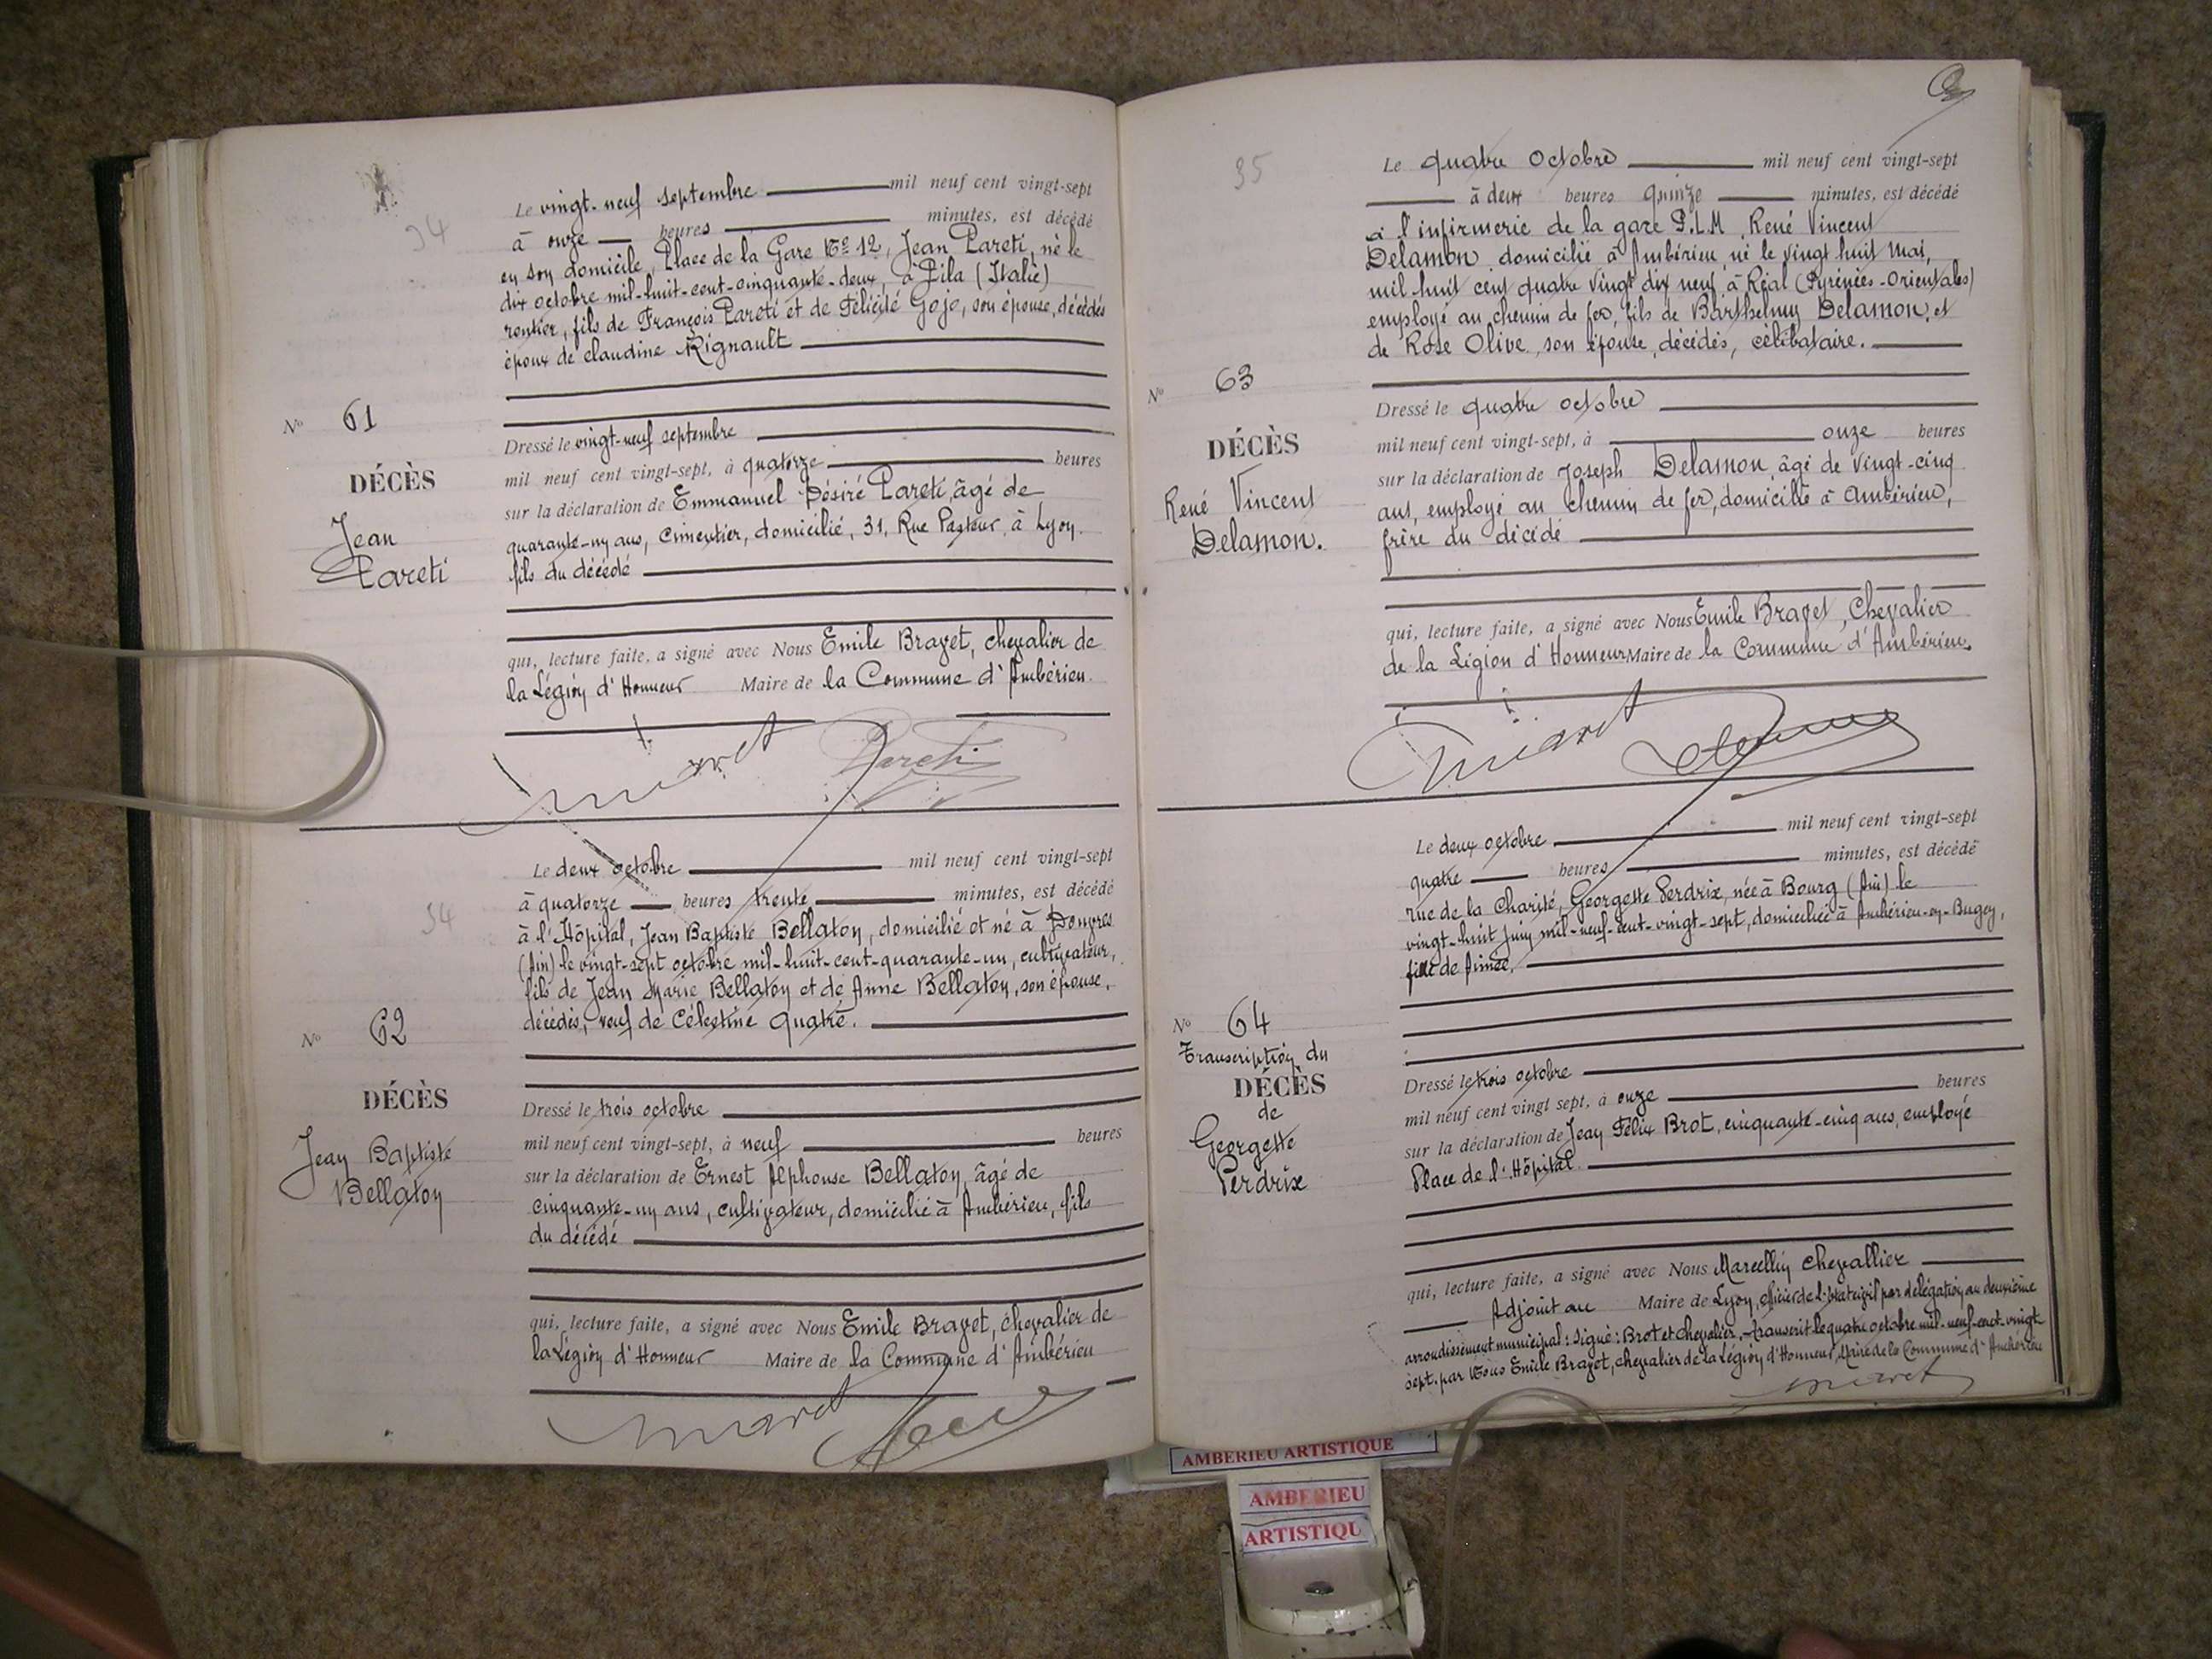 34
Le vingt-neuf septembre mil neuf cent vingt-sept
à onze heures minutes, est décédé
en son domicile, Place de la Gare No 12, Jean Pareti, né le
dix octobre mil-huit-cent-cinquante-deux, à Pila (Italie)
rentier, fils de François Pareti et de Félicité Gojo, son épouse, décédés
époux de Claudine Rignault
No 61
DÉCÈS
Jean
Pareti
Dressé le vingt-neuf septembre
mil neuf cent vingt-sept, à quatorze heures
sur la déclaration de Emmanuel Désiré Pareti, âgé de
quarante-un ans, cimentier, domicilié, 31, Rue Pasteur, à Lyon.
fils du décédé
qui, lecture faite, a signé avec Nous Emile Bravet, chevalier de
la Légion d'Honneur Maire de la Commune d'Ambérieu.
Pareti
34
Le deux octobre mil neuf cent vingt-sept
à quatorze heures trente minutes, est décédé
à l'Hôpital, Jean Baptiste Bellaton, domicilié et né à Douvres
(Ain) le vingt-sept octobre mil-huit-cent-quarante-un, cultivateur,
fils de Jean Marie Bellaton et de Anne Bellaton, son épouse,
décédés, veuf de Célestine Quatre.
No 62
DÉCÈS
Jean Baptiste
Bellaton
Dressé le trois octobre
mil neuf cent vingt-sept, à neuf heures
sur la déclaration de Ernest Alphonse Bellaton, âgé de
cinquante-un ans, cultivateur, domicilié à Ambérieu, fils
du décédé
qui, lecture faite, a signé avec Nous Emile Bravet, chevalier de
la Légion d'Honneur Maire de la Commune d'Ambérieu
35
Le quatre Octobre mil neuf cent vingt-sept
à deux heures quinze minutes, est décédé
à l'infirmerie de la gare P.L.M. René Vincent
Delamon domicilié à Ambérieu, né le vingt huit Mai,
mil huit cent quatre vingt dix neuf à Réal (Pyrénées-Orientales)
employé au chemin de fer, fils de Barthelmy Delamon, et
de Rose Olive, son épouse, décédés, célibataire.
No 63
DÉCÈS
René Vincent
Delamon.
Dressé le quatre octobre
mil neuf cent vingt-sept, à onze heures
sur la déclaration de Joseph Delamon, âgé de vingt-cinq
ans, employé au chemin de fer, domicilié à Ambérieu,
frère du décédé
qui, lecture faite, a signé avec Nous Emile Bravet, Chevalier
de la Légion d'Honneur Maire de la Commune d'Ambérieu.
Le deux octobre mil neuf cent vingt-sept
quatre heures minutes, est décédé
rue de la Charité, Georgette Perdrix, née à Bourg (Ain) le
vingt-huit juin mil-neuf-cent-vingt-sept, domiciliée à Ambérieu-en-Bugey,
fille de Aimée,
No 64
Transcription du
DÉCÈS
de
Georgette
Perdrix
Dressé le trois octobre
mil neuf cent vingt sept, à onze heures
sur la déclaration de Jean Félix Brot, cinquante-cinq ans, employé
Place de l'Hôpital
qui, lecture faite, a signé avec Nous Marcellin Chevallier
Adjoint au Maire de Lyon, officier de l'état civil par délégation au deuxième
arrondissement municipal: signé: Brot et Chevalier, transcrit le quatre octobre mil-neuf-cent-vingt-
sept, par Nous Emile Bravet, chevalier de la Légion d'Honneur, Maire de la Commune d'Ambérieu
AMBERIEU ARTISTIQUE
AMBERIEU
ARTISTIQU